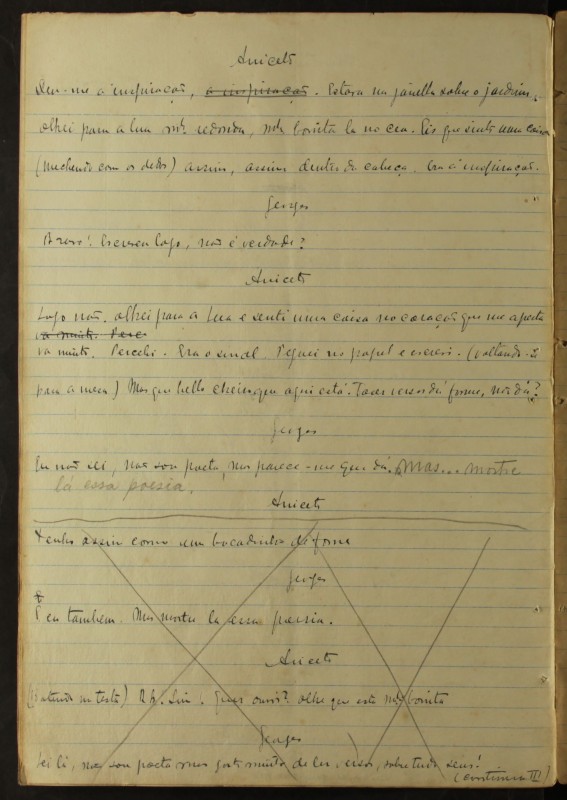 Aniceto
Deu-me a inspiração, a inspiração. Estava na janella sobre o jardim,
olhei para a lua mto redonda, mto bonita la no ceu. Eis que sinto uma coisa
(mechendo com os dedos) assim, assim dentro da cabeça. Era a inspiração.
Georges
Bravo! Escreveu logo, não é verdade?
Aniceto
Logo não. Olhei para a lua e senti uma coisa no coração que me aperta
va muito. Perce
va muito. Percebi. Era o signal. Peguei no papel e escrevi. (voltando-se
para a mesa) Mas que bello cheiro que aqui está. Fazer versos dá fome, não dá?
Georges
Eu não sei, não sou poeta, mas parece-me que dá. Mas... mostre
lá essa poesia.
Aniceto
Tenho assim como um bocadinho de fome
Georges
E eu tambem. Mas mostre la essa poesia.
Aniceto
(batendo na testa) Ah. Sim! Quer ouvir? olhe que está mto bonita
Georges
Lei li, não sou poeta mas gosto muito de ler versos, sobretudo seus!
(continua III)